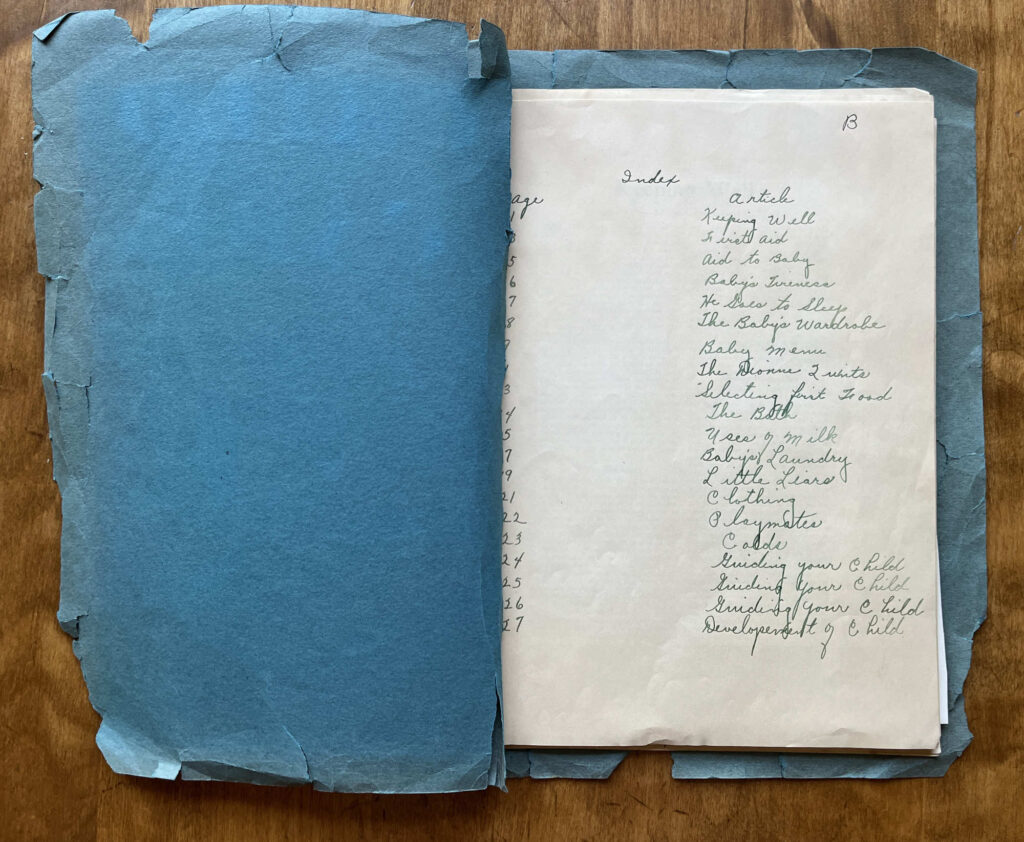 B
Index
age Article
1 Keeping Well
3 First aid
5 Aid to Baby
6 Baby's Tireness
7 He Goes to Sleep
8 The Baby's Wardrobe
9 Baby Menu
1 The Dionne Quints
3 Selecting first Food
4 The Bath
5 Uses of Milk
7 Baby's Laundry
9 Little Liars
21 Clothing
22 Playmates
23 Colds
24 Guiding your Child
25 Guiding Your Child
26 Guiding your Child
27 Developement of Child